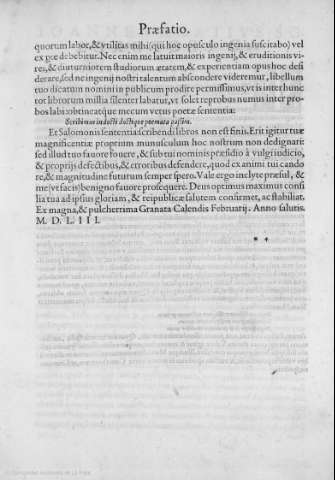 Præfatio.
quorum labor, & vtilitas mihi (qui hoc opusculo ingenia suscitabo) vel
ex pte debebitur. Nec enim me latuit maioris ingenij, & eruditionis vi-
res, & diuturniotem studiorum ætatem, & experientiam opus hoc desi
derare, sed ne ingenij nostri talentum abscondere videremur, libellum
tuo dicatum nomini in publicum prodire permissimus, vt is inter hunc
tot librorum millia silenter labatur, vt solet reprobus numus inter pro-
bos labi: obtineatque mecum vetus poetæ sententia:
Scribimus indocti doctique poemata passim.
Et Salomonis sententia scribendi libros non est finis. Erit igitur tuæ
magnificentiæ proprium munusculum hoc nostrum non dedignari:
sed illud tuo fauore fouere, & sub tui nominis præsidio à vulgi iudicio,
& proprijs defectibus, & erroribus defendere, quod ex animi tui cando
re, & magnitudine futurum semper spero. Vale ergo inclyte præsul, &
me (vt facis) benigno fauore prosequere. Deus optimus maximus consi
lia tua ad ipsius gloriam, & reipublicæ salutem confirmet, ac stabiliat.
Ex magna, & pulcherrima Granata Calendis Februarij. Anno salutis.
M. D. L. III.